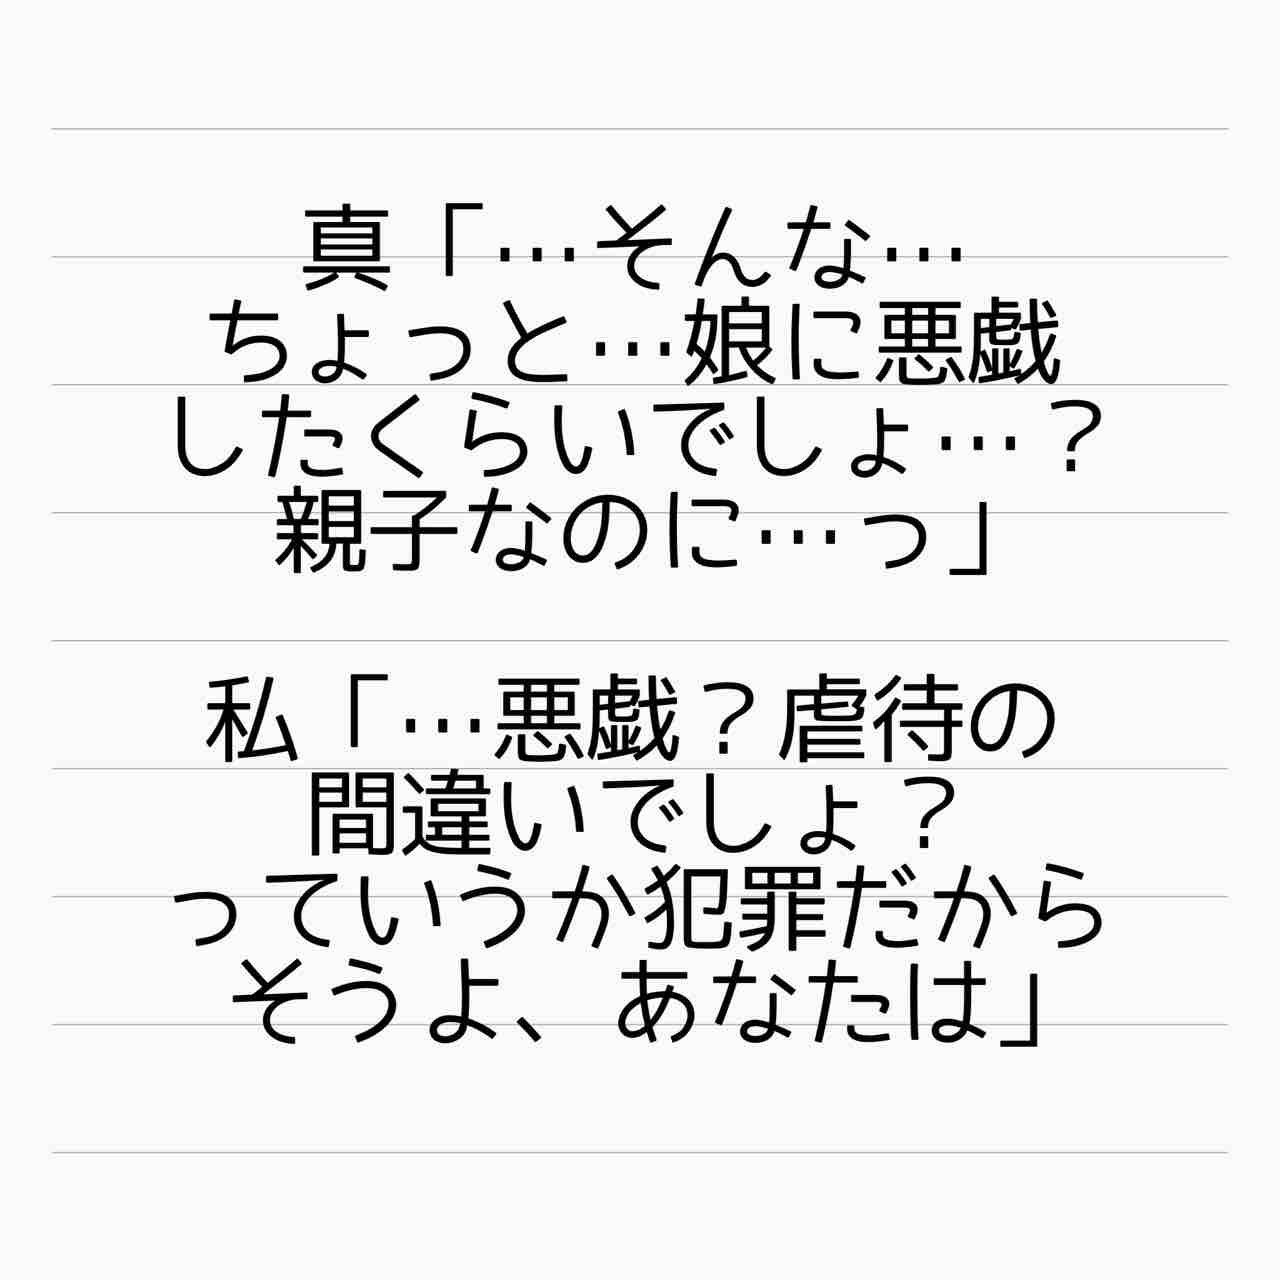 真「…そんな…
ちょっと…娘に悪戯
したくらいでしょ…？
親子なのに…っ」
私「…悪戯？虐待の
間違いでしょ？
っていうか犯罪だから
そうよ、あなたは」